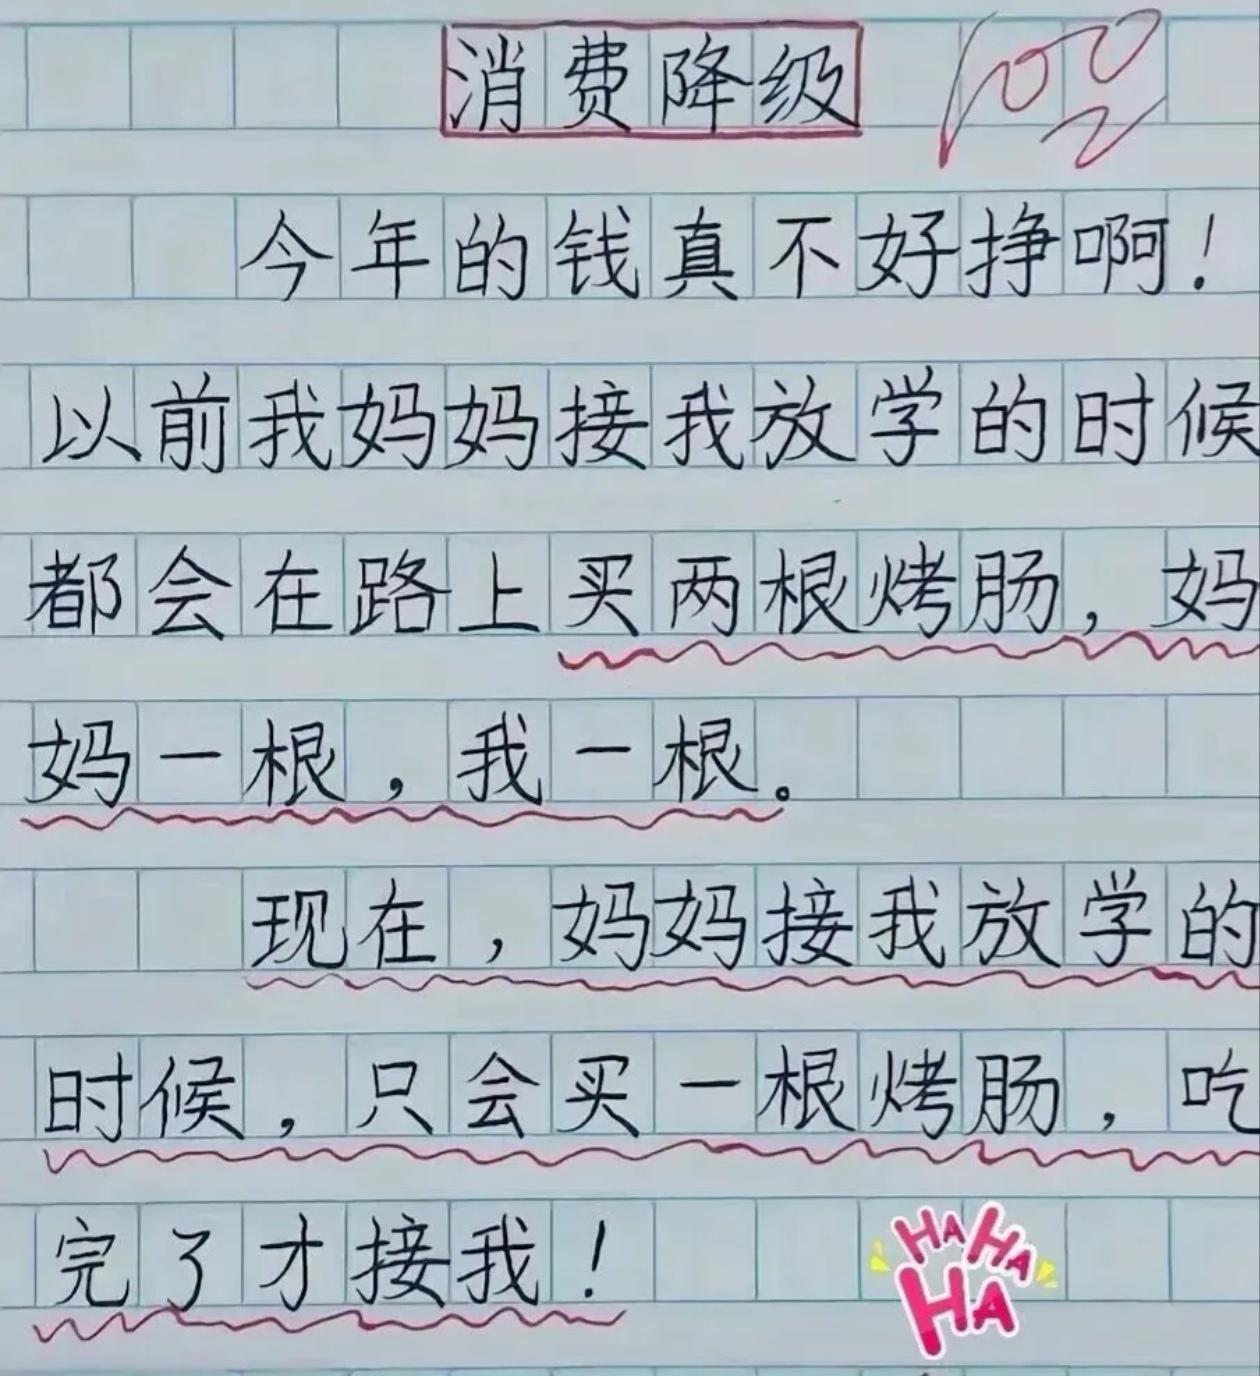 消费降级 100
今年的钱真不好挣啊！
以前我妈妈接我放学的时候
都会在路上买两根烤肠，妈
妈一根，我一根。
现在，妈妈接我放学的
时候，只会买一根烤肠，吃
完了才接我！
HA HA
HA